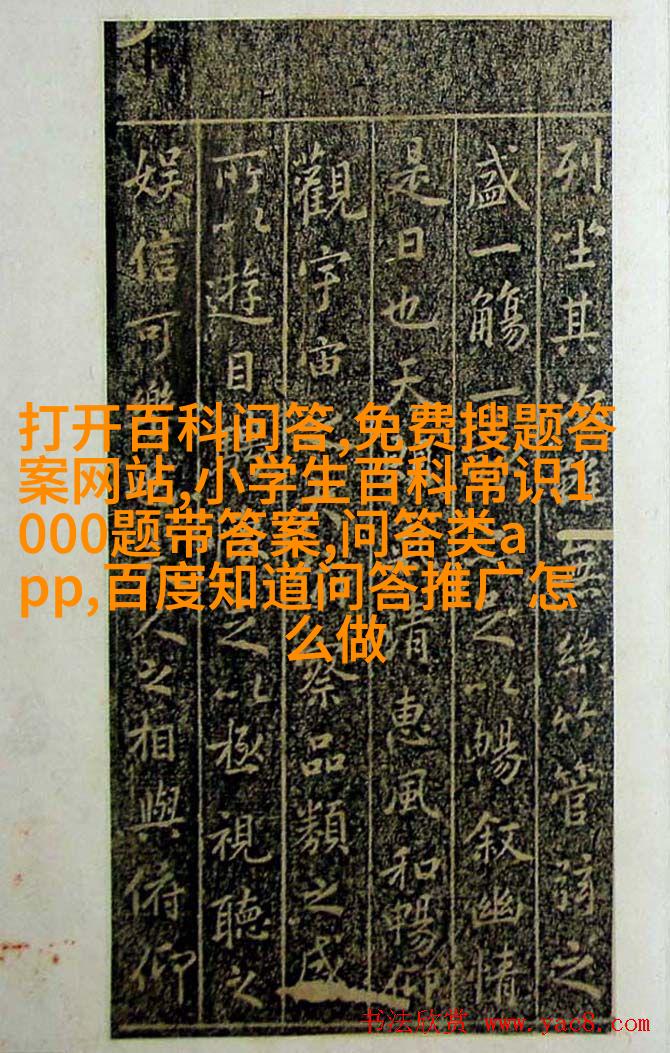 列坐其次雖無絲竹管弦之
盛一觴一以暢叙幽情
是日也天清惠風和暢仰
觀宇宙察品類之盛
所以遊目以極視聽之
娱信可樂人之相與俯仰
打开百科问答,免费搜题答
案网站,小学生百科常识1
000题带答案,问答类a
pp,百度知道问答推广怎
么做
书法欣赏 www.yac8.com